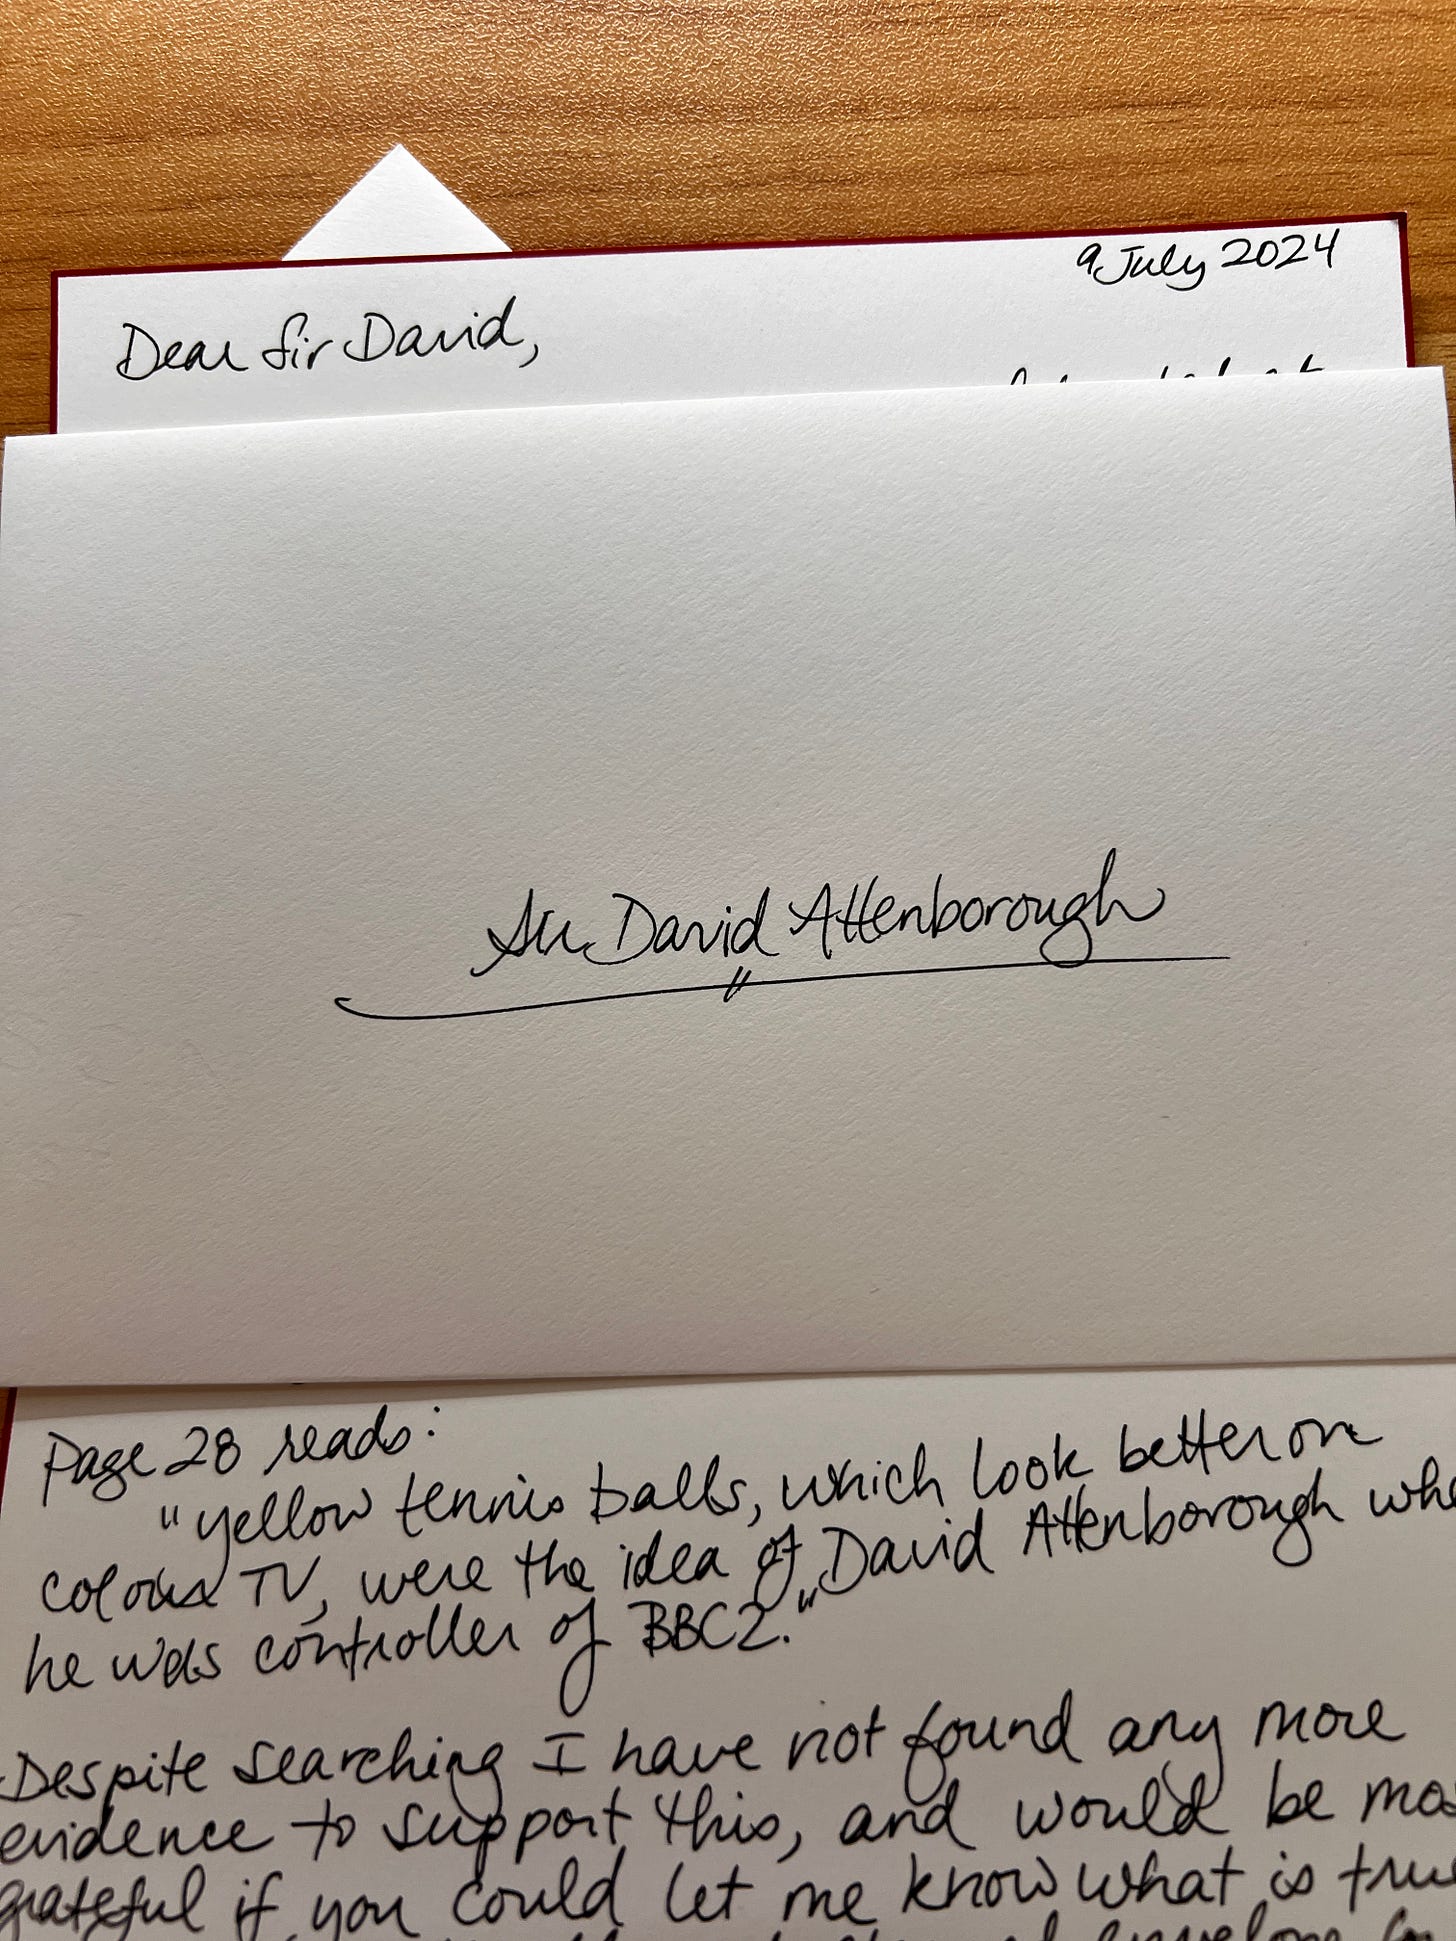 9 July 2024
Dear Sir David,
Sir David Attenborough
Page 28 reads:
"yellow tennis balls, which look better on
colour TV, were the idea of David Attenborough whe
he was controller of BBC2."
Despite searching I have not found any more
evidence to support this, and would be mos
grateful if you could let me know what is tru
envelope